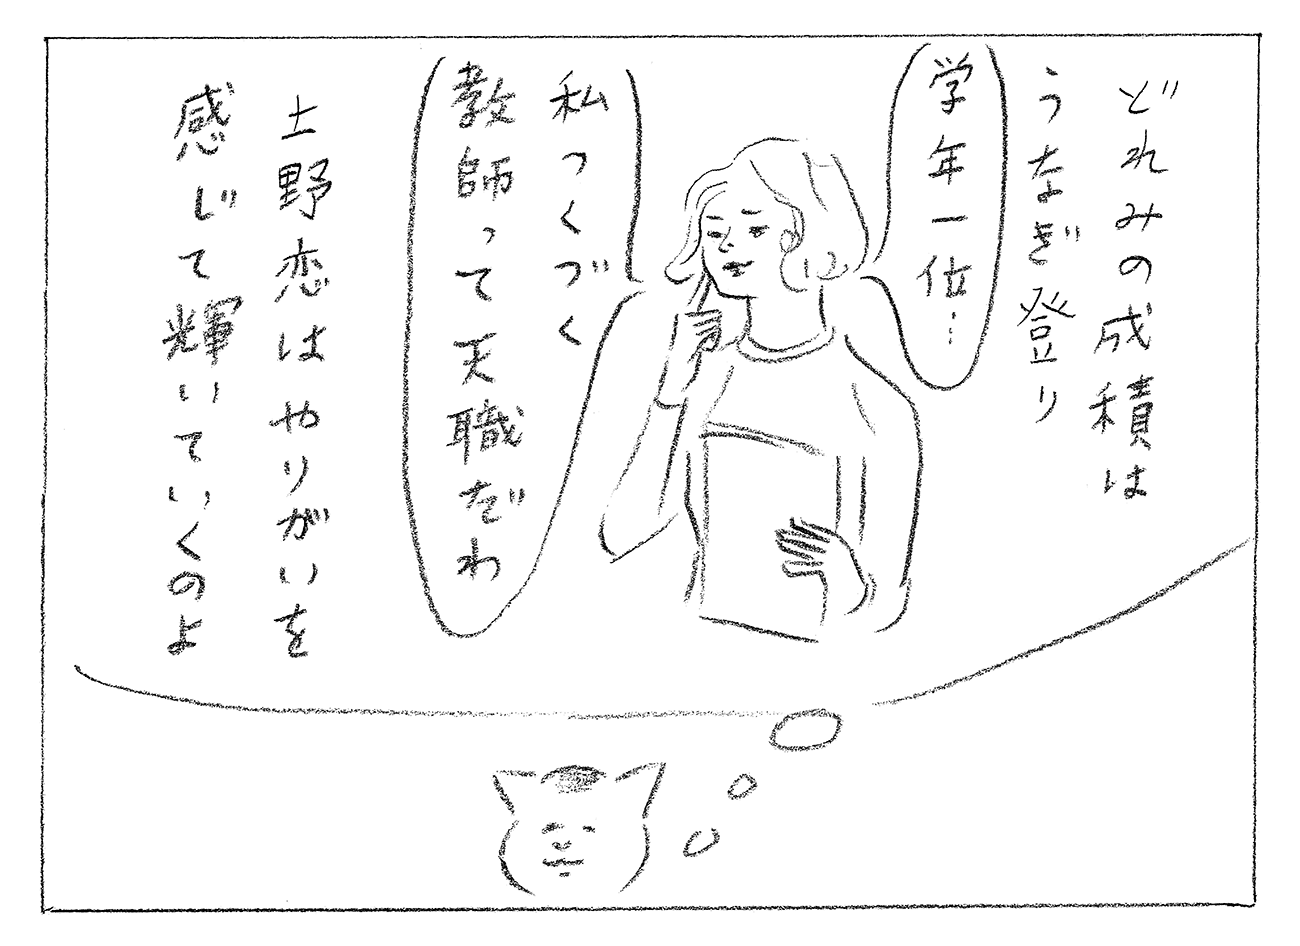 どれみの成積は
うなぎ登り
学年一位…
私つくづく
教師って天職だわ
土野恋はやりがいを
感じて輝いていくのよ